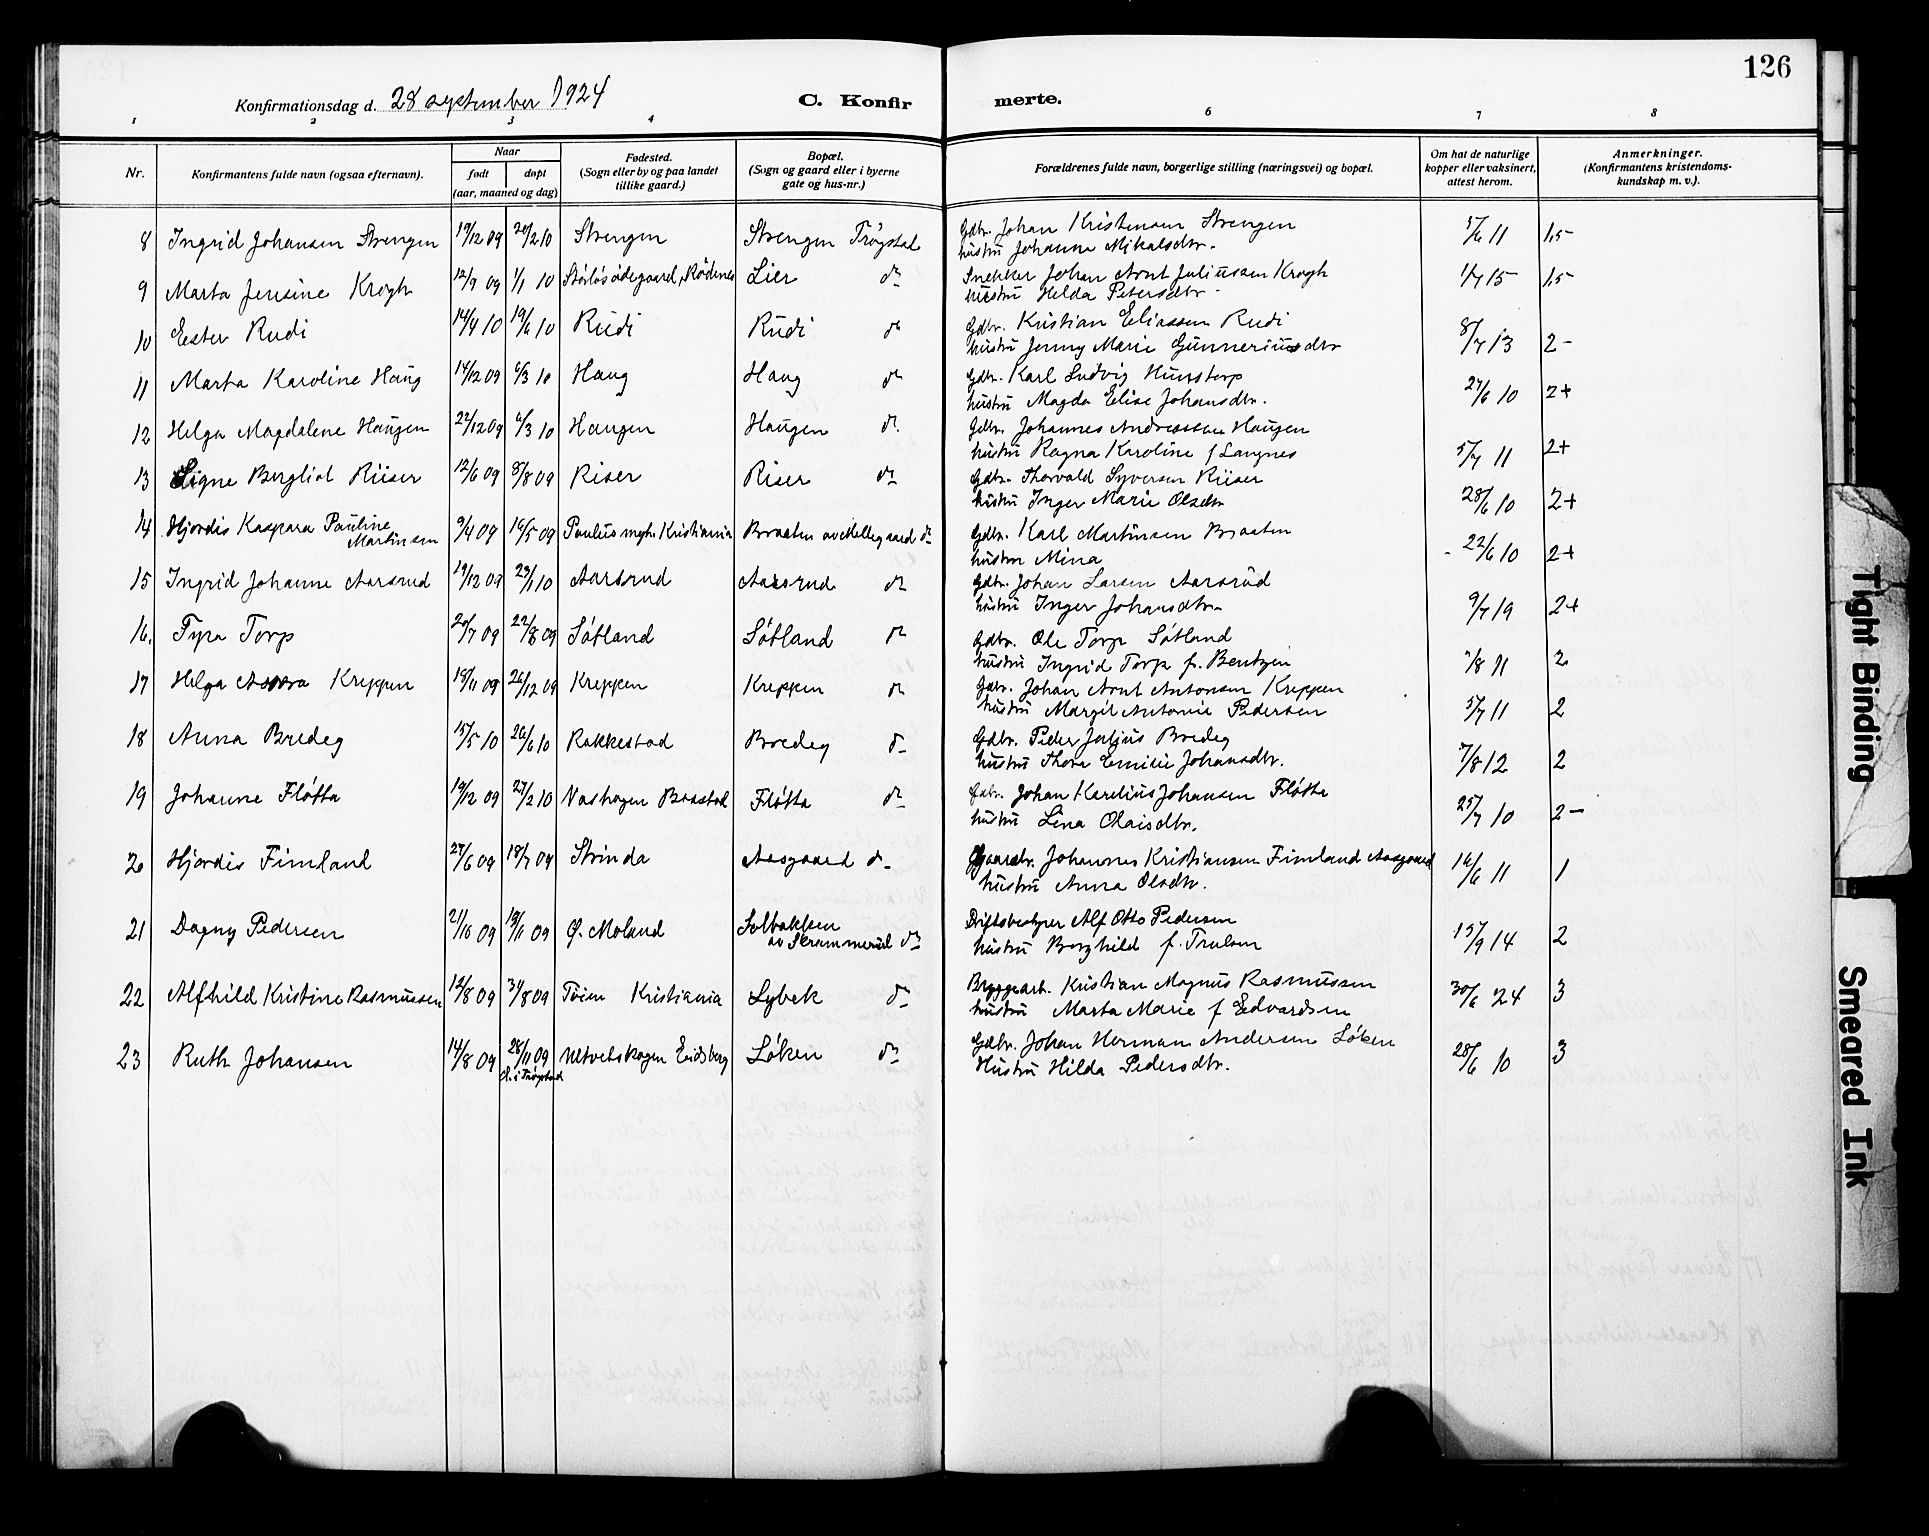 126
Konfirmationsdag d. 28 september 1924
C. Konfirmerte.
1 2 3 4 6 7 8
Nr.
Konfirmantens fulde navn (ogsaa efternavn).
Naar
født
døpt
(aar, maaned og dag)
Fødested.
(Sogn eller by og paa landet
tillike gaard.)
Bopæl.
(Sogn og gaard eller i byerne
gate og hus-nr.)
Forældrenes fulde navn, borgerlige stilling (næringsvei) og bopæl.
Om hat de naturlige
kopper eller vaksinert,
attest herom.
Anmerkninger.
(Konfirmantens kristendoms-
kundskap m. v.).
8 Ingrid Johansen Strengen 19/12 09 20/2 10 Strengen Strengen Trøgstad Gdbr. Johan Kristensen Strengen 5/6 11 1,5-
hustru Johanna Mikalsdtr.
9 Marta Jensine Krogh 12/9 09 1/1 10 Rødenes Lier do Snekker Johan Arnt Juliussen Krogh 1/7 15 1,5-
hustru Hilda Petersdtr.
10 Ester Rudi 14/4 10 19/6 10 Rudi Rudi do Gdbr. Kristian Eliassen Rudi 8/7 13 2-
hustru Jenny Marie Gunneriusdtr
11 Marta Karoline Haug 14/12 09 6/3 10 Haug Haug do Gdbr. Karl Ludvig Hunstorp 27/6 10 2+
hustru Magda Elise Johansdtr.
12 Helga Magdalene Haugen 22/12 09 6/3 10 Haugen Haugen do Gdbr. Johannes Andreassen Haugen 5/7 11 2+
hustru Ragna Karoline f Langnes
13 Signe Bergliot Riiser 12/6 09 8/8 09 Riser Riser do Gdbr. Thorvald Syversen Riiser 28/6 10 2+
hustru Inger Marie Olsdtr
14 Hjordis Kaspara Pauline Martinsen 9/4 09 16/5 09 Paulus mgh. Kristiania Braaten av Mellegaard do Gdbr. Karl Martinsen Braaten 22/6 10 2+
hustru Mina
15 Ingrid Johanne Aarsrud 19/12 09 23/1 10 Aarsrud Aarsrud do Gdbr. Johan Larsen Aarsrud 9/7 19 2+
hustru Inger Johansdtr
16. Tyra Torp 20/7 09 22/8 09 Søtland Søtland do Gdbr. Ole Torp Søtland 7/8 11 2
hustru Ingrid Torp f. Bentzen
17 Helga Kreppen 18/11 09 26/12 09 Kreppen Kreppen do Gdbr. Johan Arnt Antonsen Kreppen 5/7 11 2
hustru Margit Antonie Pedersen
18 Anna Bredeg 15/5 10 26/6 10 Rakkestad Bredeg do Gdbr. Peder Julius Bredeg 7/8 12 2
hustru Thora Emilie Johansdtr.
19 Johanne Fløtta 19/12 09 27/2 10 Vashagen Baastad Fløtta do Gdbr. Johan Karelius Johansen Fløtta 25/7 10 2-
hustru Lina Olaisdtr.
20 Hjordis Fimland 27/6 09 18/7 09 Strinda Aasgaard do Gaardbr. Johannes Kristiansen Fimland Aasgaard 16/6 11 1
hustru Anna Olsdtr.
21 Dagny Pedersen 2/10 09 19/11 09 Ø. Moland Solbakken av Skrammerud do Driftsbestyrer Alf Otto Pedersen 15/9 14 2
hustru Borghild f. Trulsen
22 Alfhild Kristine Rasmussen 12/8 09 31/8 09 Tøien Kristiania Lybek do Bryggearb. Kristian Magnus Rasmussen 30/6 24 3
hustru Marta Marie f Edvardsen
23 Ruth Johansen 14/8 09 28/11 09 Ø. i Trøgstad Ultvetskogen Eidsberg Løken do Gdbr. Johan Herman Andersen Løken 28/6 10 3
Hustru Hilda Pedersdtr.
Tight Binding
Smeared Ink